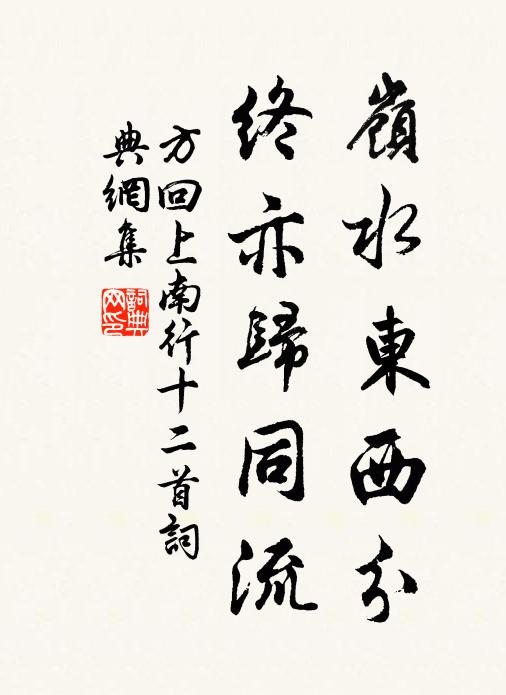 嶺水東西分
終亦歸同流
方回上南行十二首詞
典網集
詞典網印